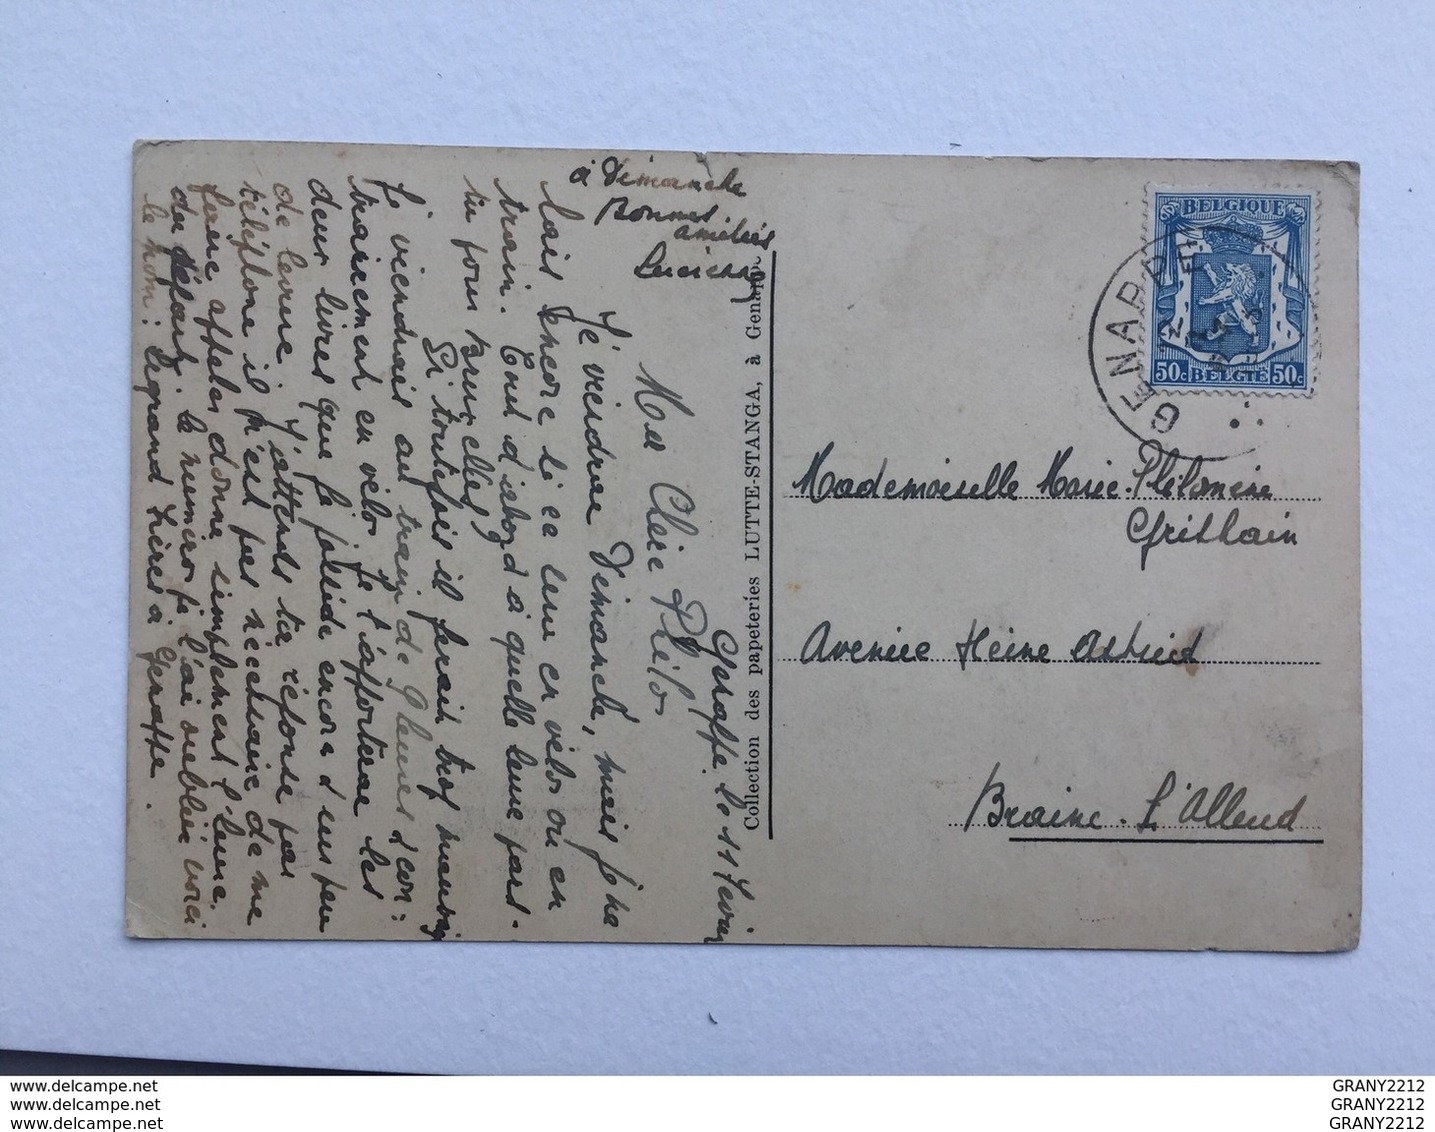 à Dimanche
Bonnes
amitiés
Lucienne
Genappe. le 11 Fevrier
Ma Chère Philo
Je viendrai Dimanche, mais je ne
sais encore si ce sera en vélo ou en
train. Tout d'abord à quelle heure pars-
tu pour Bruxelles?
Si toutefois il ferait trop mauvais
je viendrais au train de heures con=
trairement en vélo. Je t'apporterai les
deux livres que je possède encore d'un peu
de lecture. J'attends ta réponse par
téléphone il n'est pas nécessaire de me
faire appeler, donne simplement l'heure
du départ. le numéro je l'ai oublié voici
le nom: Legrand Lières à Genappe.
Collection des papeteries LUTTE-STANGA, à Genappe
BELGIQUE
50c BELGIE 50c
GENAPPE
Mademoiselle Marie-Philomène
Ghislain
Avenue Reine Astrid
Braine-L'Alleud
www.delcampe.net
www.delcampe.net
www.delcampe.net
GRANY2212
GRANY2212
GRANY2212